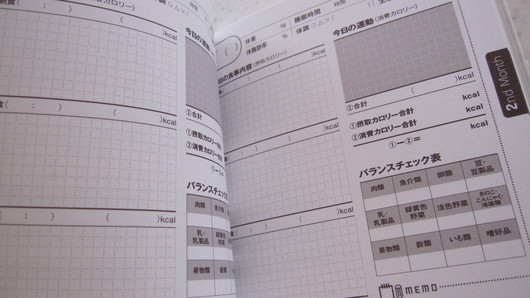 時間
体調 ○ △ × (
)kcal
( : ) ( )kcal
( )kcal
今日の運動(消費カロリー)
②合計
①摂取カロリー合計
②消費カロリー合計
①-②
バランスチェック
肉類 魚介類
乳・乳製品 緑黄色野菜
果物類 穀類
( )
体重
体脂肪率 %
睡眠時間 時間
体調 ○ △ × ( )
日の食事内容(摂取カロリー)
( )kcal
( )kcal
( )kcal
今日の運動(消費カロリー)
( )kcal
②合計 kcal
①摂取カロリー合計 kcal
②消費カロリー合計 kcal
①-②= kcal
バランスチェック表
肉類 魚介類 卵類 豆・豆製品
乳・乳製品 緑黄色野菜 淡色野菜 きのこ・こんにゃく・海藻類
果物類 穀類 いも類 嗜好品
MEMO
2nd Month